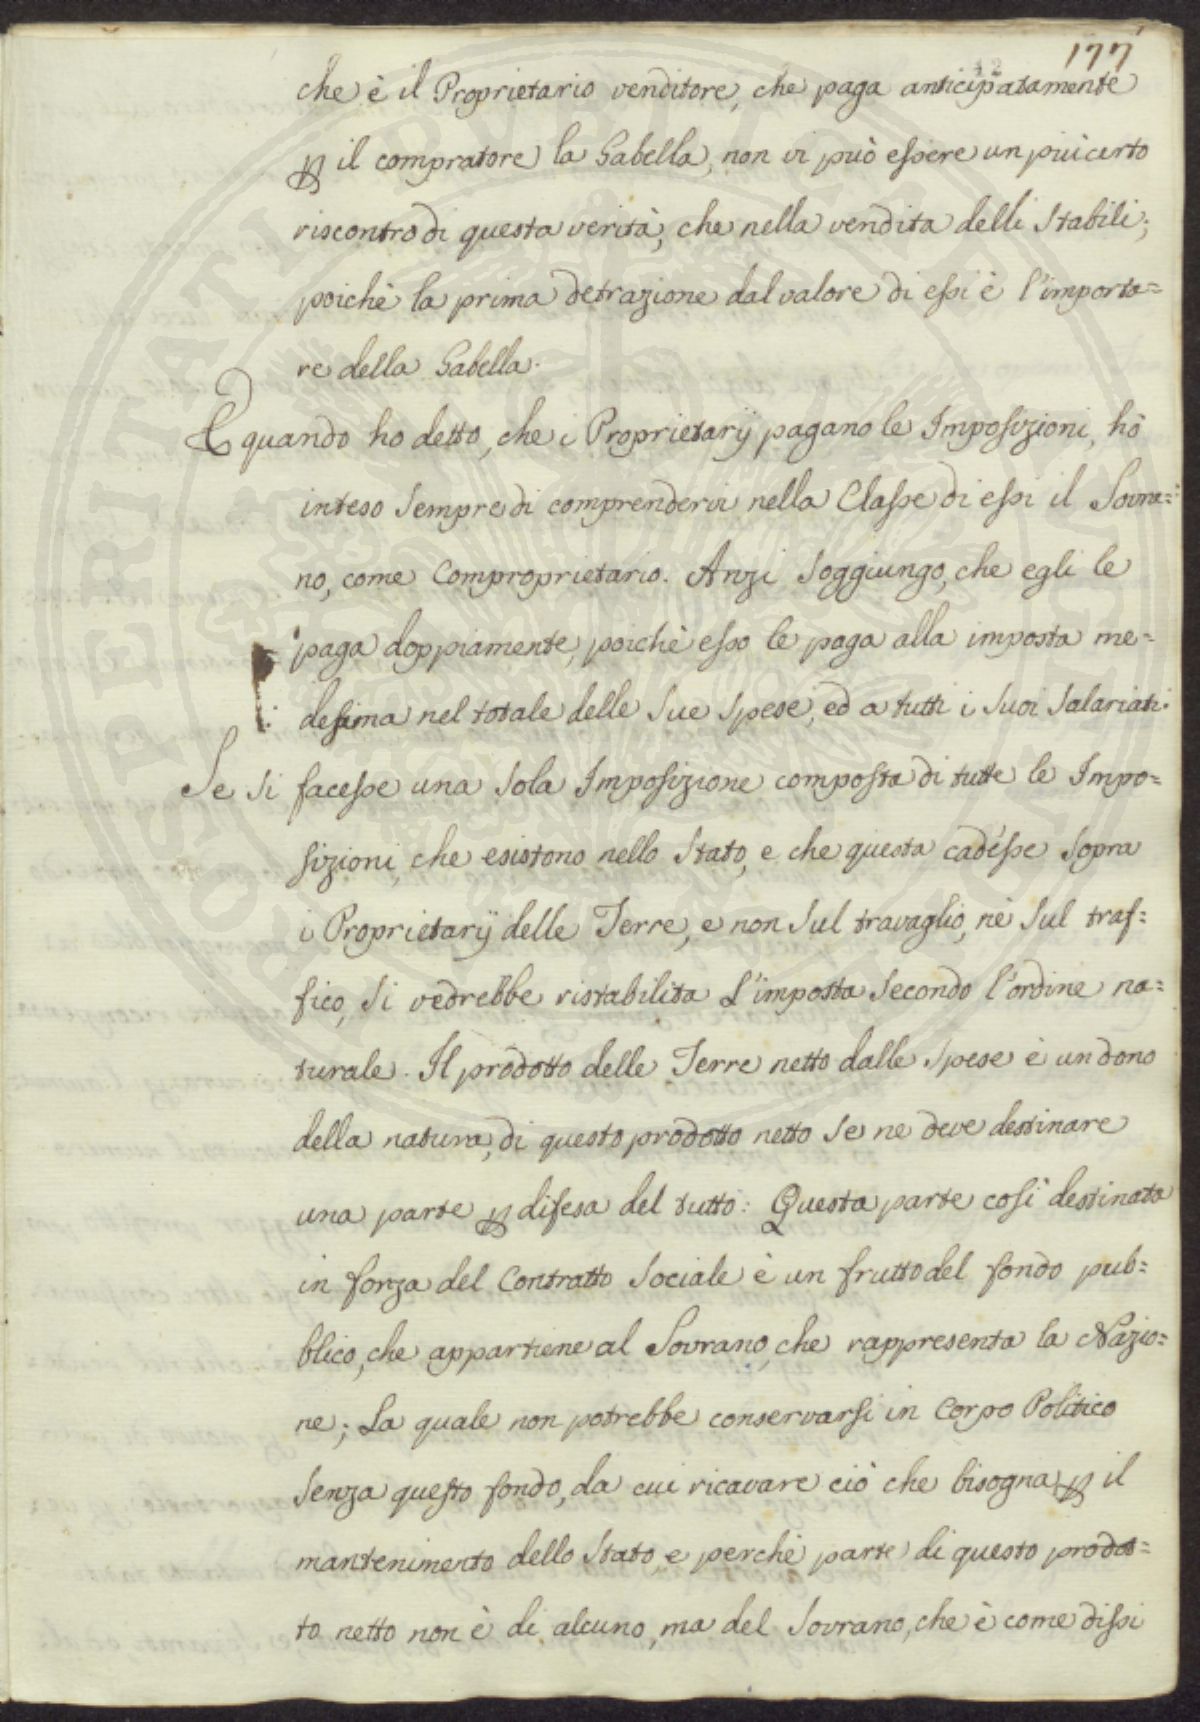 177
42
che è il Proprietario venditore, che paga anticipatamente
ꝑ il compratore la Gabella, non vi può essere un più certo
riscontro di questa verità, che nella vendita delli Stabili;
poichè la prima detrazione dal valore di essi è l'importa=
re della Gabella.
E quando ho detto, che i Proprietarij pagano le Imposizioni, hò
inteso sempre di comprendervi nella Classe di essi il Sovra=
no, come Comproprietario. Anzi soggiungo, che egli le
paga doppiamente, poichè esso le paga alla imposta me=
desima nel totale delle sue spese, ed a tutti i suoi salariati.
Se si facesse una sola Imposizione composta di tutte le Impo=
sizioni, che esistono nello Stato, e che questa cadesse sopra
i Proprietarij delle Terre, e non sul travaglio, nè sul traf=
fico, si vedrebbe ristabilita l'imposta secondo l'ordine na=
turale. Il prodotto delle Terre netto dalle spese è un dono
della natura, di questo prodotto netto se ne deve destinare
una parte ꝑ difesa del tutto: Questa parte così destinata
in forza del Contratto Sociale è un frutto del fondo pub=
blico, che appartiene al Sovrano, che rappresenta la Nazio=
ne; La quale non potrebbe conservarsi in Corpo Politico
senza questo fondo, da cui ricavare ciò che bisogna ꝑ il
mantenimento dello Stato, e perchè parte di questo prodot=
to netto non è di alcuno, ma del Sovrano, che è come dissi
PROSPERITATI PUBLICAE